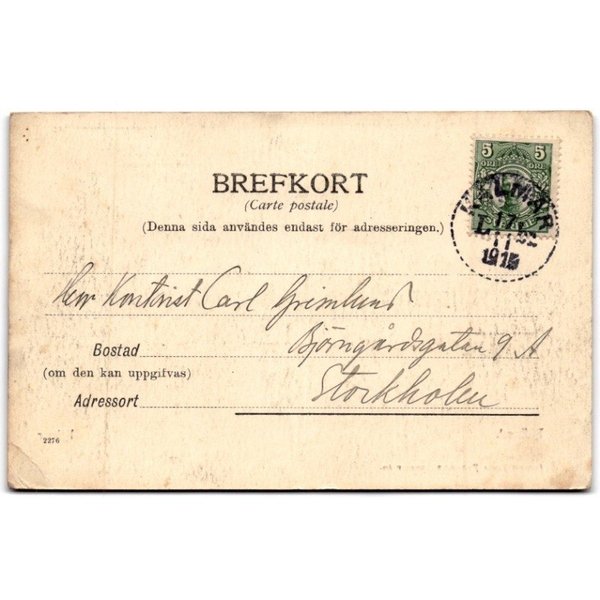 5 5
ÖRE ÖRE
BREFKORT
(Carte postale)
(Denna sida användes endast för adresseringen.)
KALMAR
17
11
1915
Herr Kontorist Carl Grimlund
Bostad Björngårdsgatan 9 A
(om den kan uppgifvas)
Adressort Stockholm
2276